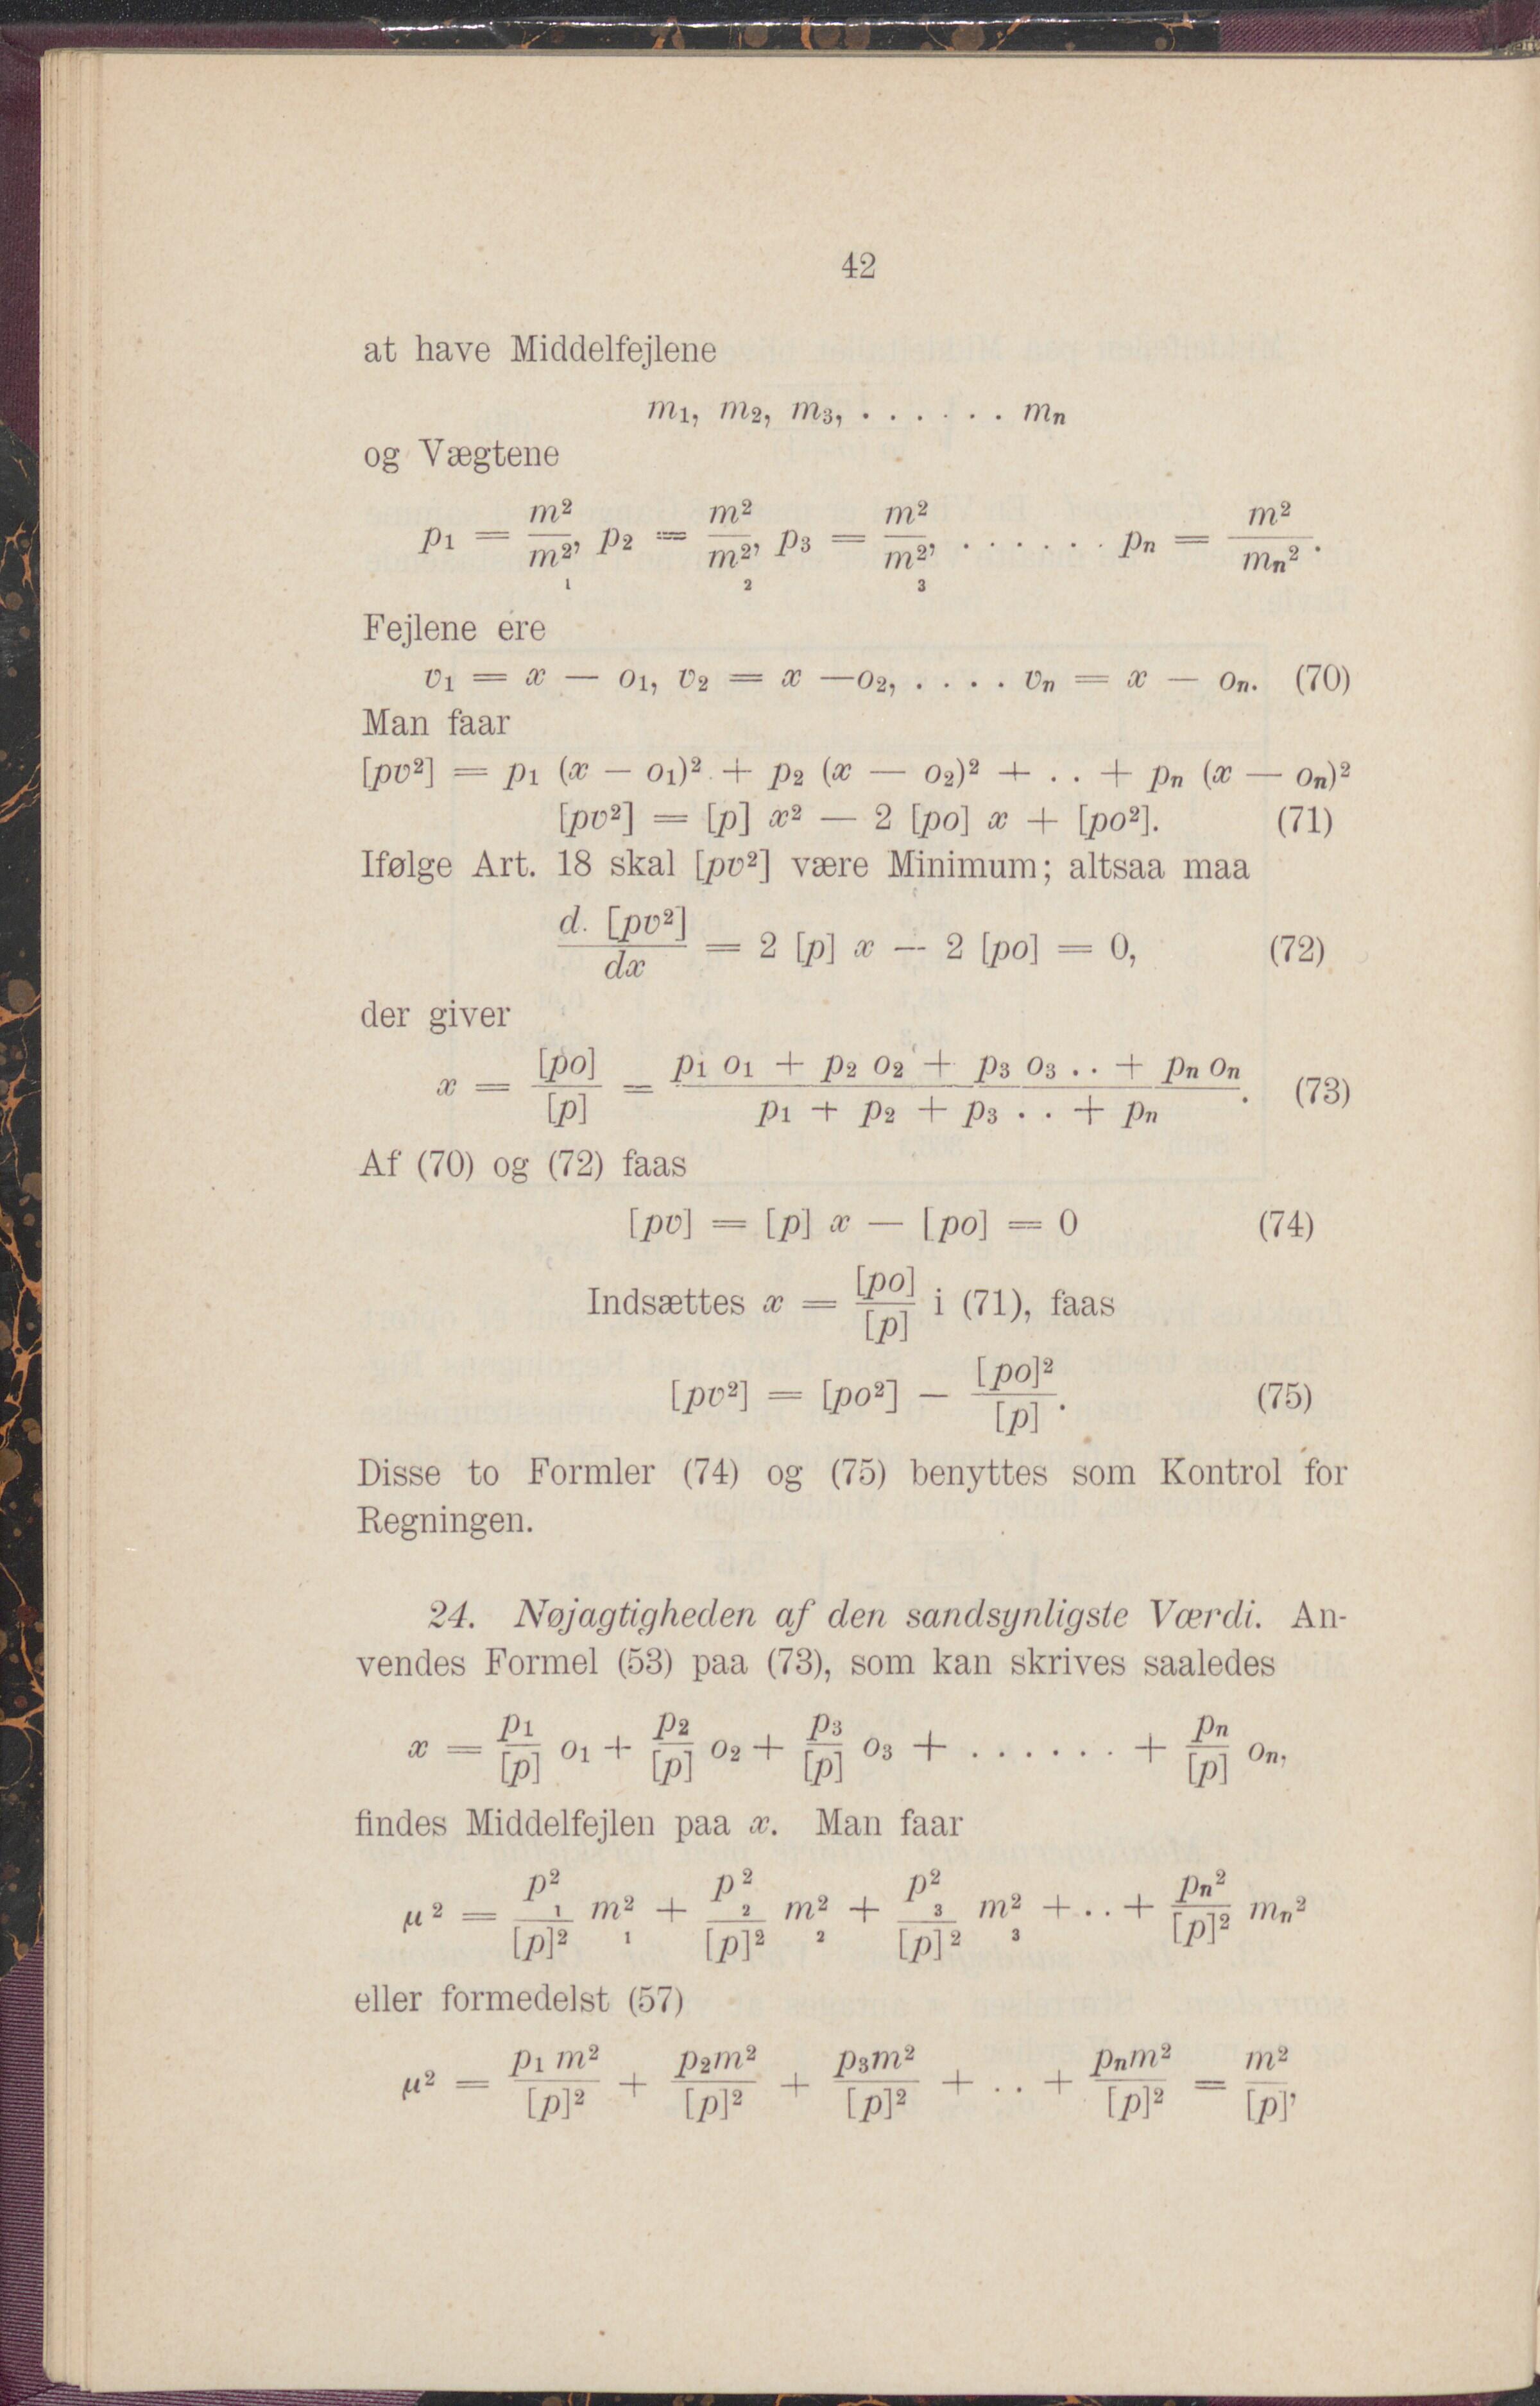 42
at have Middelfejlene
m₁, m₂, m₃, . . . . . . mₙ
og Vægtene
p₁ = m²/m₁², p₂ = m²/m₂², p₃ = m²/m₃², . . . . . . pₙ = m²/mₙ².
Fejlene ere
v₁ = x — o₁, v₂ = x —o₂, . . . . vₙ = x — oₙ. (70)
Man faar
[pv²] = p₁ (x — o₁)² + p₂ (x — o₂)² + . . + pₙ (x — oₙ)²
[pv²] = [p] x² — 2 [po] x + [po²]. (71)
Ifølge Art. 18 skal [pv²] være Minimum; altsaa maa
d. [pv²]/dx = 2 [p] x — 2 [po] = 0, (72)
der giver
x = [po]/[p] = (p₁ o₁ + p₂ o₂ + p₃ o₃ . . + pₙ oₙ)/(p₁ + p₂ + p₃ . . + pₙ). (73)
Af (70) og (72) faas
[pv] = [p] x — [po] = 0 (74)
Indsættes x = [po]/[p] i (71), faas
[pv²] = [po²] — [po]²/[p]. (75)
Disse to Formler (74) og (75) benyttes som Kontrol for
Regningen.
24. Nøjagtigheden af den sandsynligste Værdi. An-
vendes Formel (53) paa (73), som kan skrives saaledes
x = p₁/[p] o₁ + p₂/[p] o₂ + p₃/[p] o₃ + . . . . . . + pₙ/[p] oₙ,
findes Middelfejlen paa x. Man faar
μ² = p₁²/[p]² m₁² + p₂²/[p]² m₂² + p₃²/[p]² m₃² + . . + pₙ²/[p]² mₙ²
eller formedelst (57)
μ² = p₁ m²/[p]² + p₂m²/[p]² + p₃m²/[p]² + . . + pₙm²/[p]² = m²/[p],